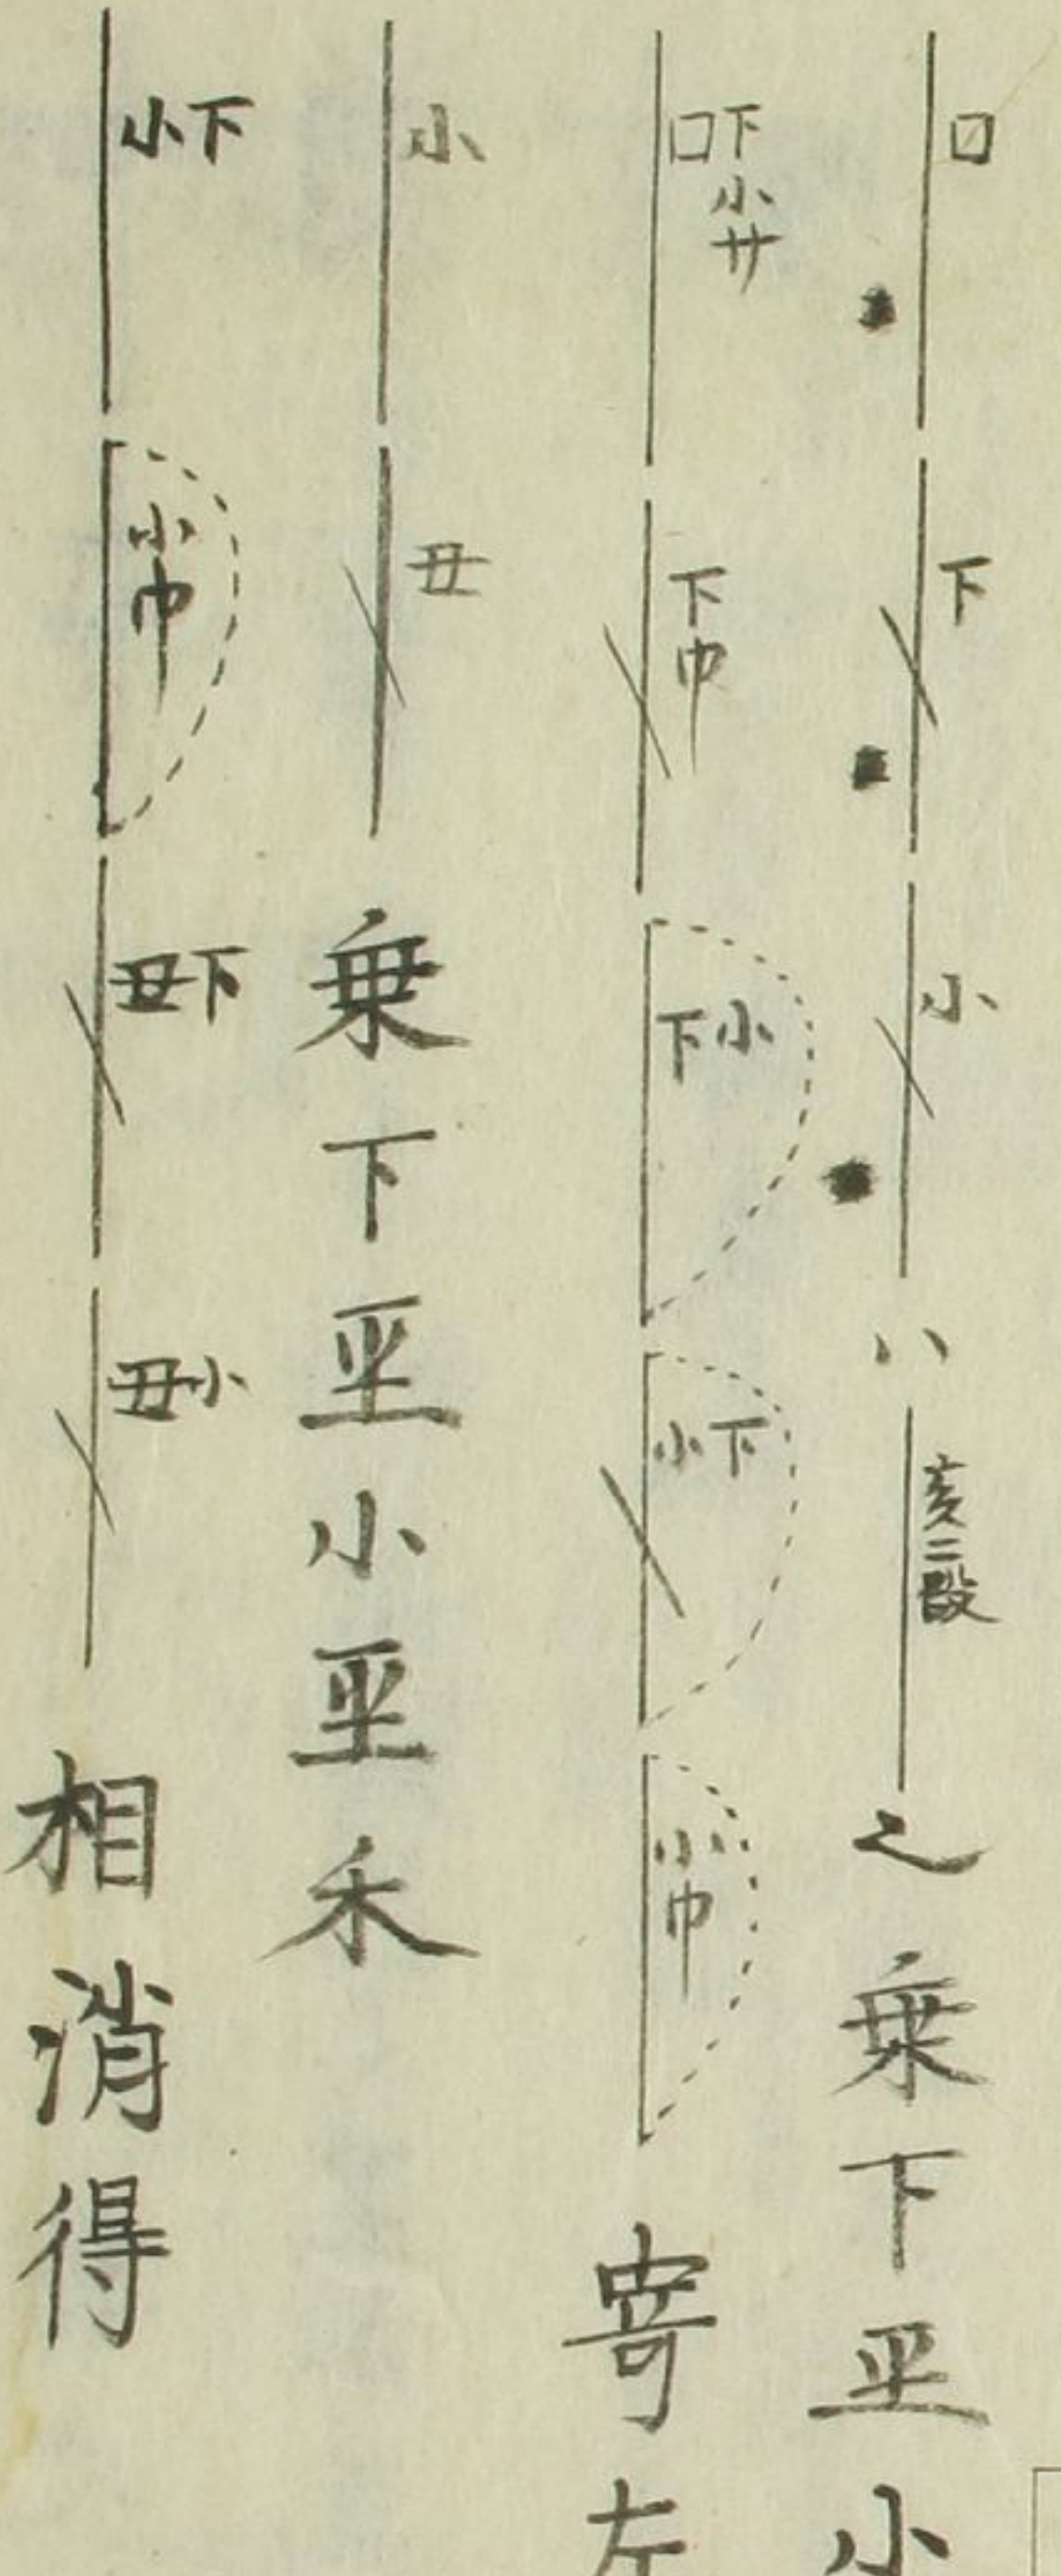 口 下 小 ハ 亥二段 之 乗下巫小
口下小廾 下巾 下小 小下 小巾 寄左
小 丑 乗下巫小巫禾
小下 小巾 丑下 丑小 相消得